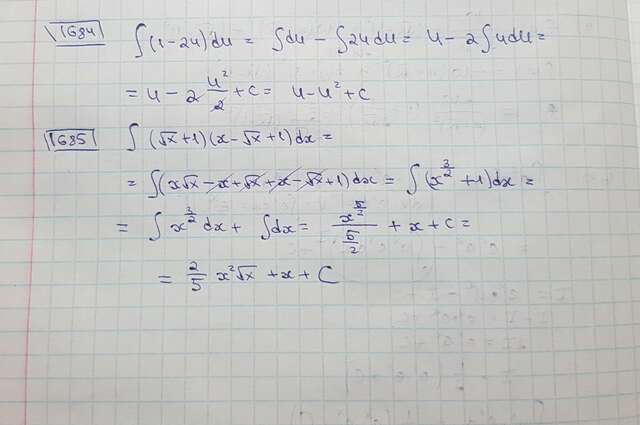 1684 ∫(1-2u)du = ∫du - ∫2udu = u - 2∫udu =
= u - 2 u²/2 + c = u - u² + c
1685 ∫(√x+1)(x-√x+1)dx =
= ∫(x√x - x + √x + x - √x + 1)dx = ∫(x^(3/2) + 1)dx =
= ∫x^(3/2)dx + ∫dx = x^(5/2)/(5/2) + x + c =
= 2/5 x²√x + x + C